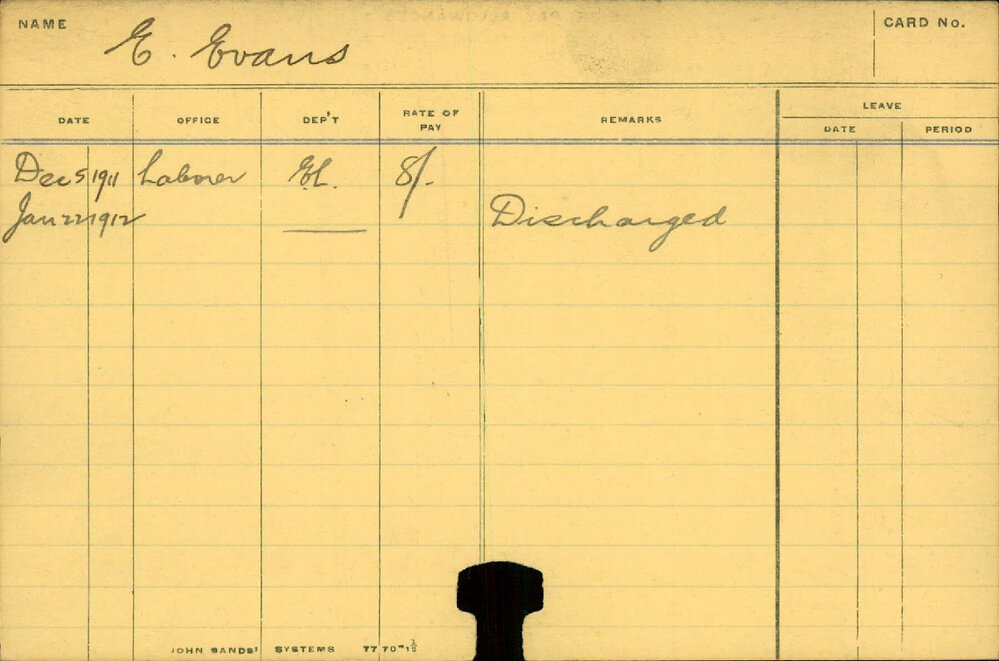 NAME E. Evans CARD No.
DATE OFFICE DEP'T RATE OF PAY REMARKS LEAVE
DATE PERIOD
Dec 5 1911 Laborer El. 8/-
Jan 22 1912 Discharged
JOHN SANDS' SYSTEMS 7770